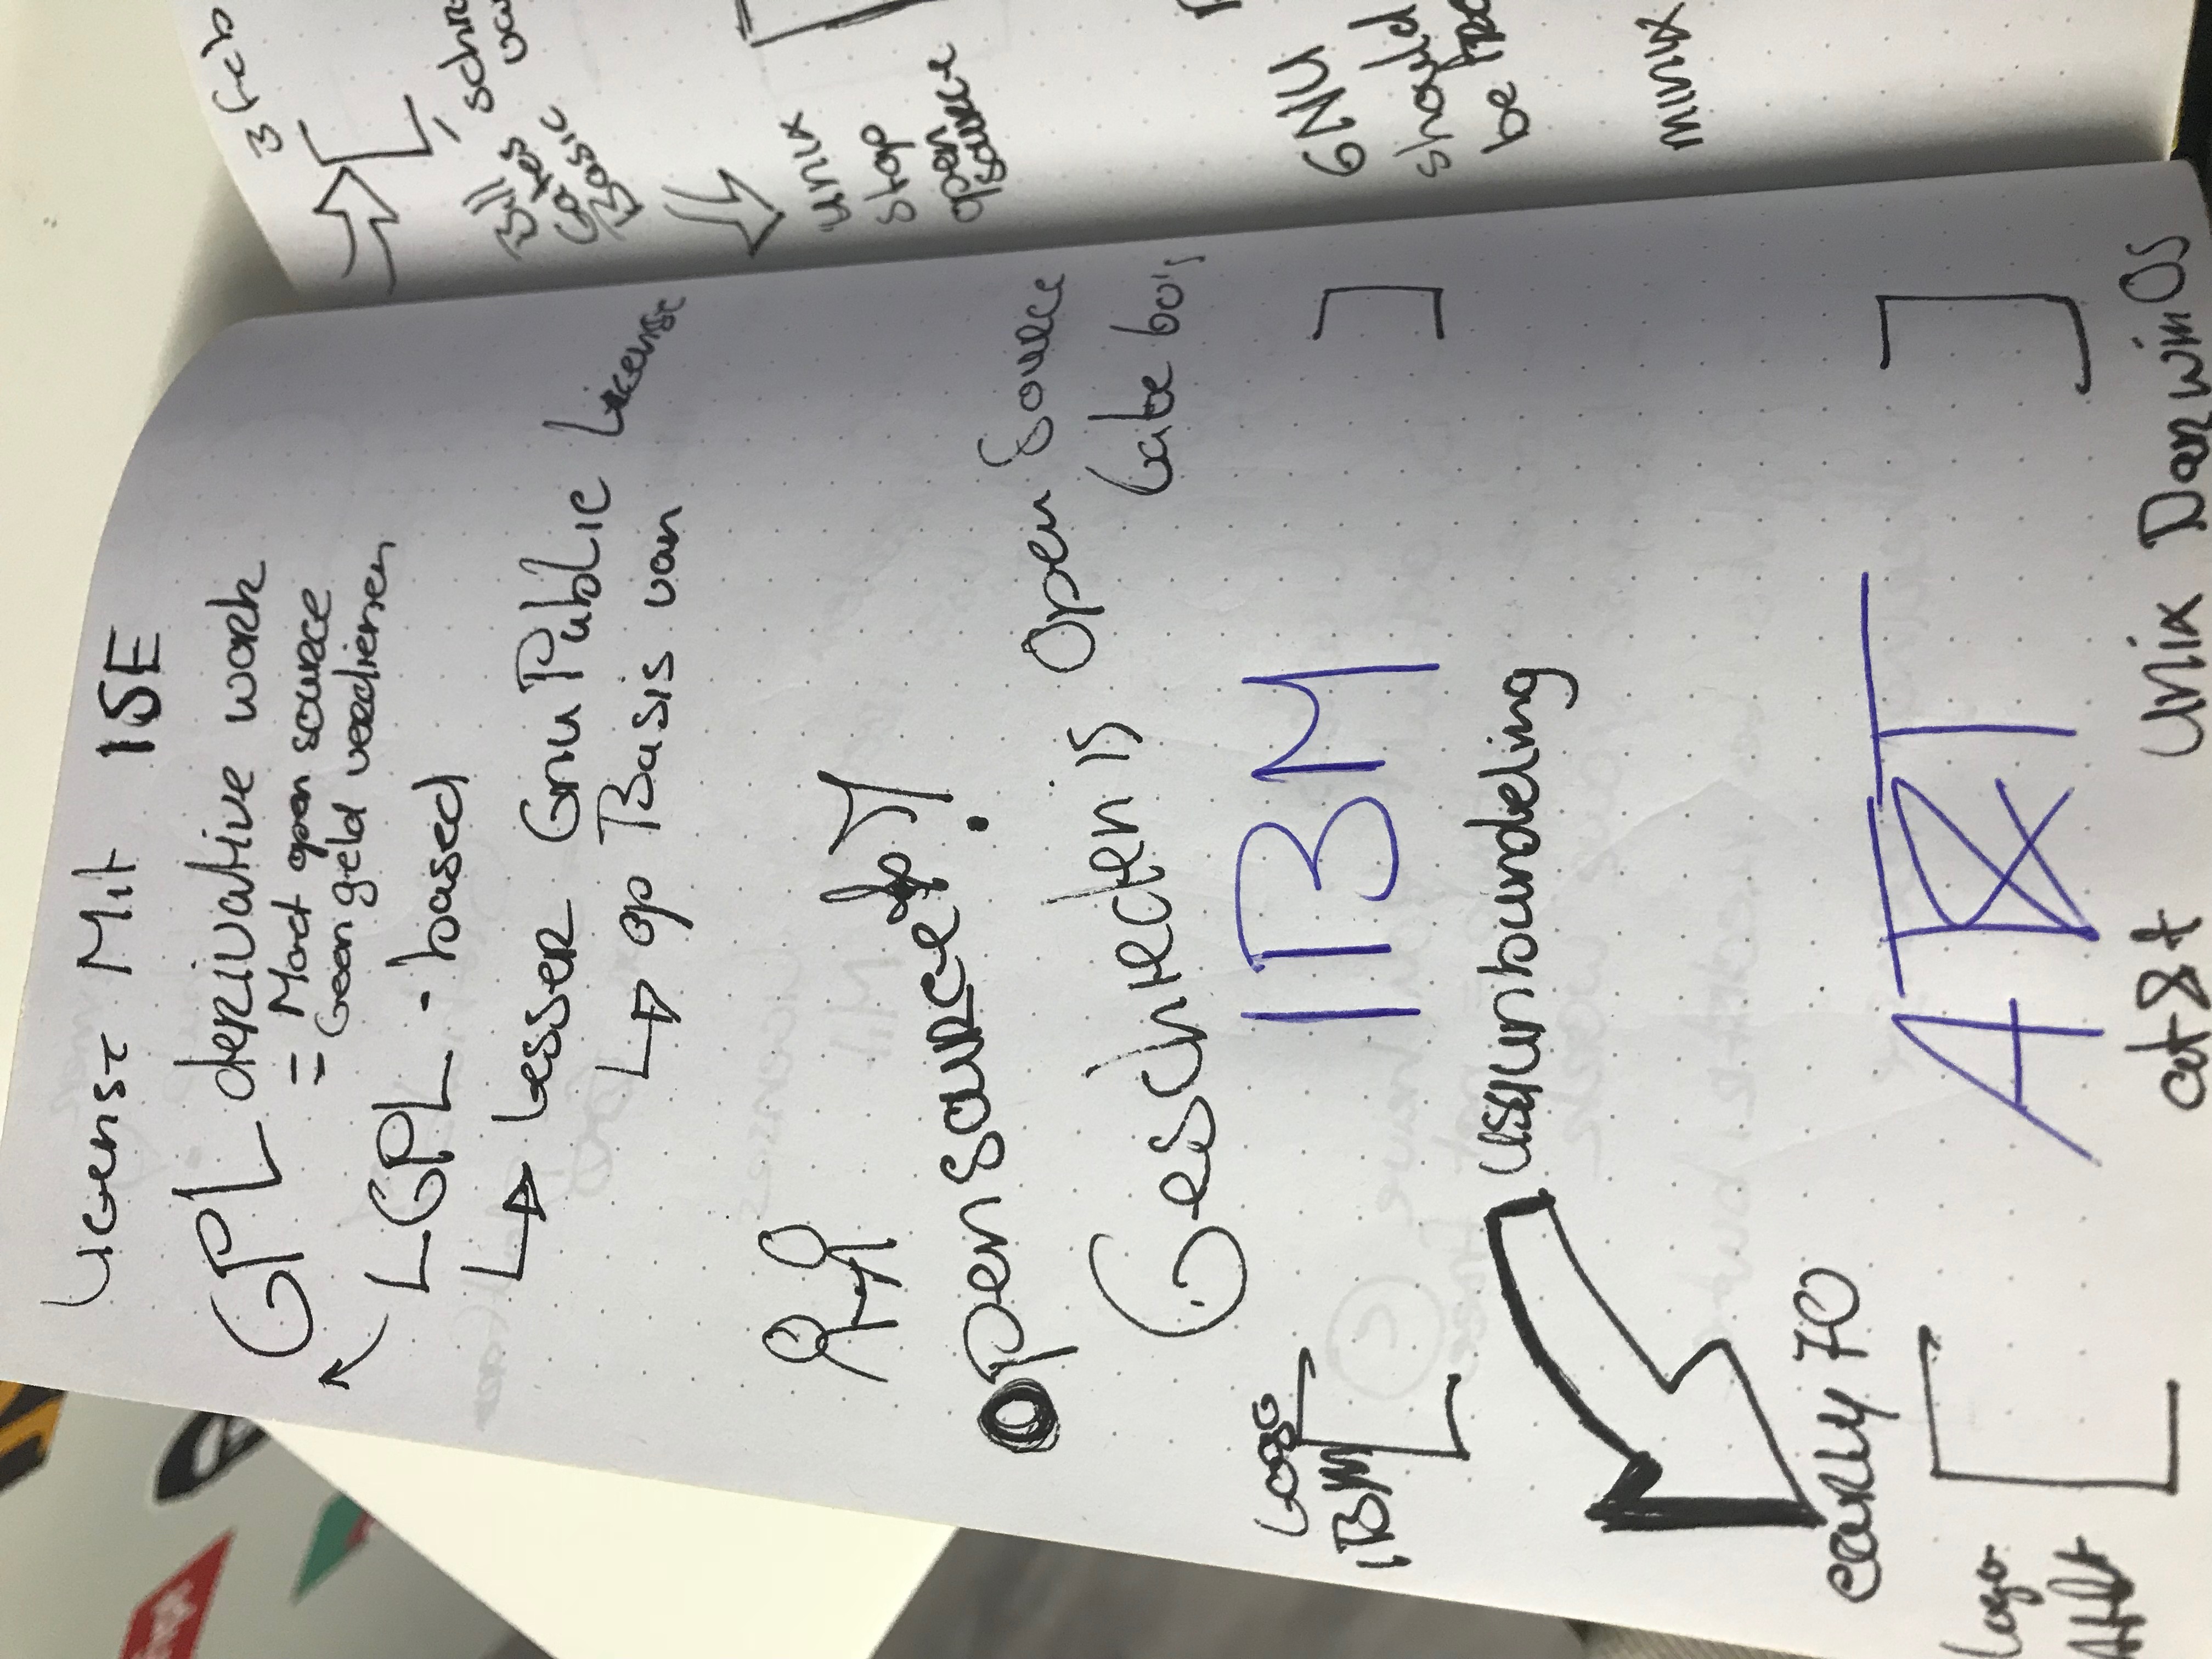 License Mit ISE
GPL derivative work
= Moet open source
= Geen geld verdienen
LGPL - based
Lesser Gnu Public License
op Basis van
Opensource
Geschiedenis Open Source
Late 60's
Logo
IBM
IBM
usa unbundeling
early 70
AT&T
Logo
At&t
at&t Unix DarwinOS
3 feb
Bill
Gates
Basic
unix
stop
open
source
GNU
should
be
minix